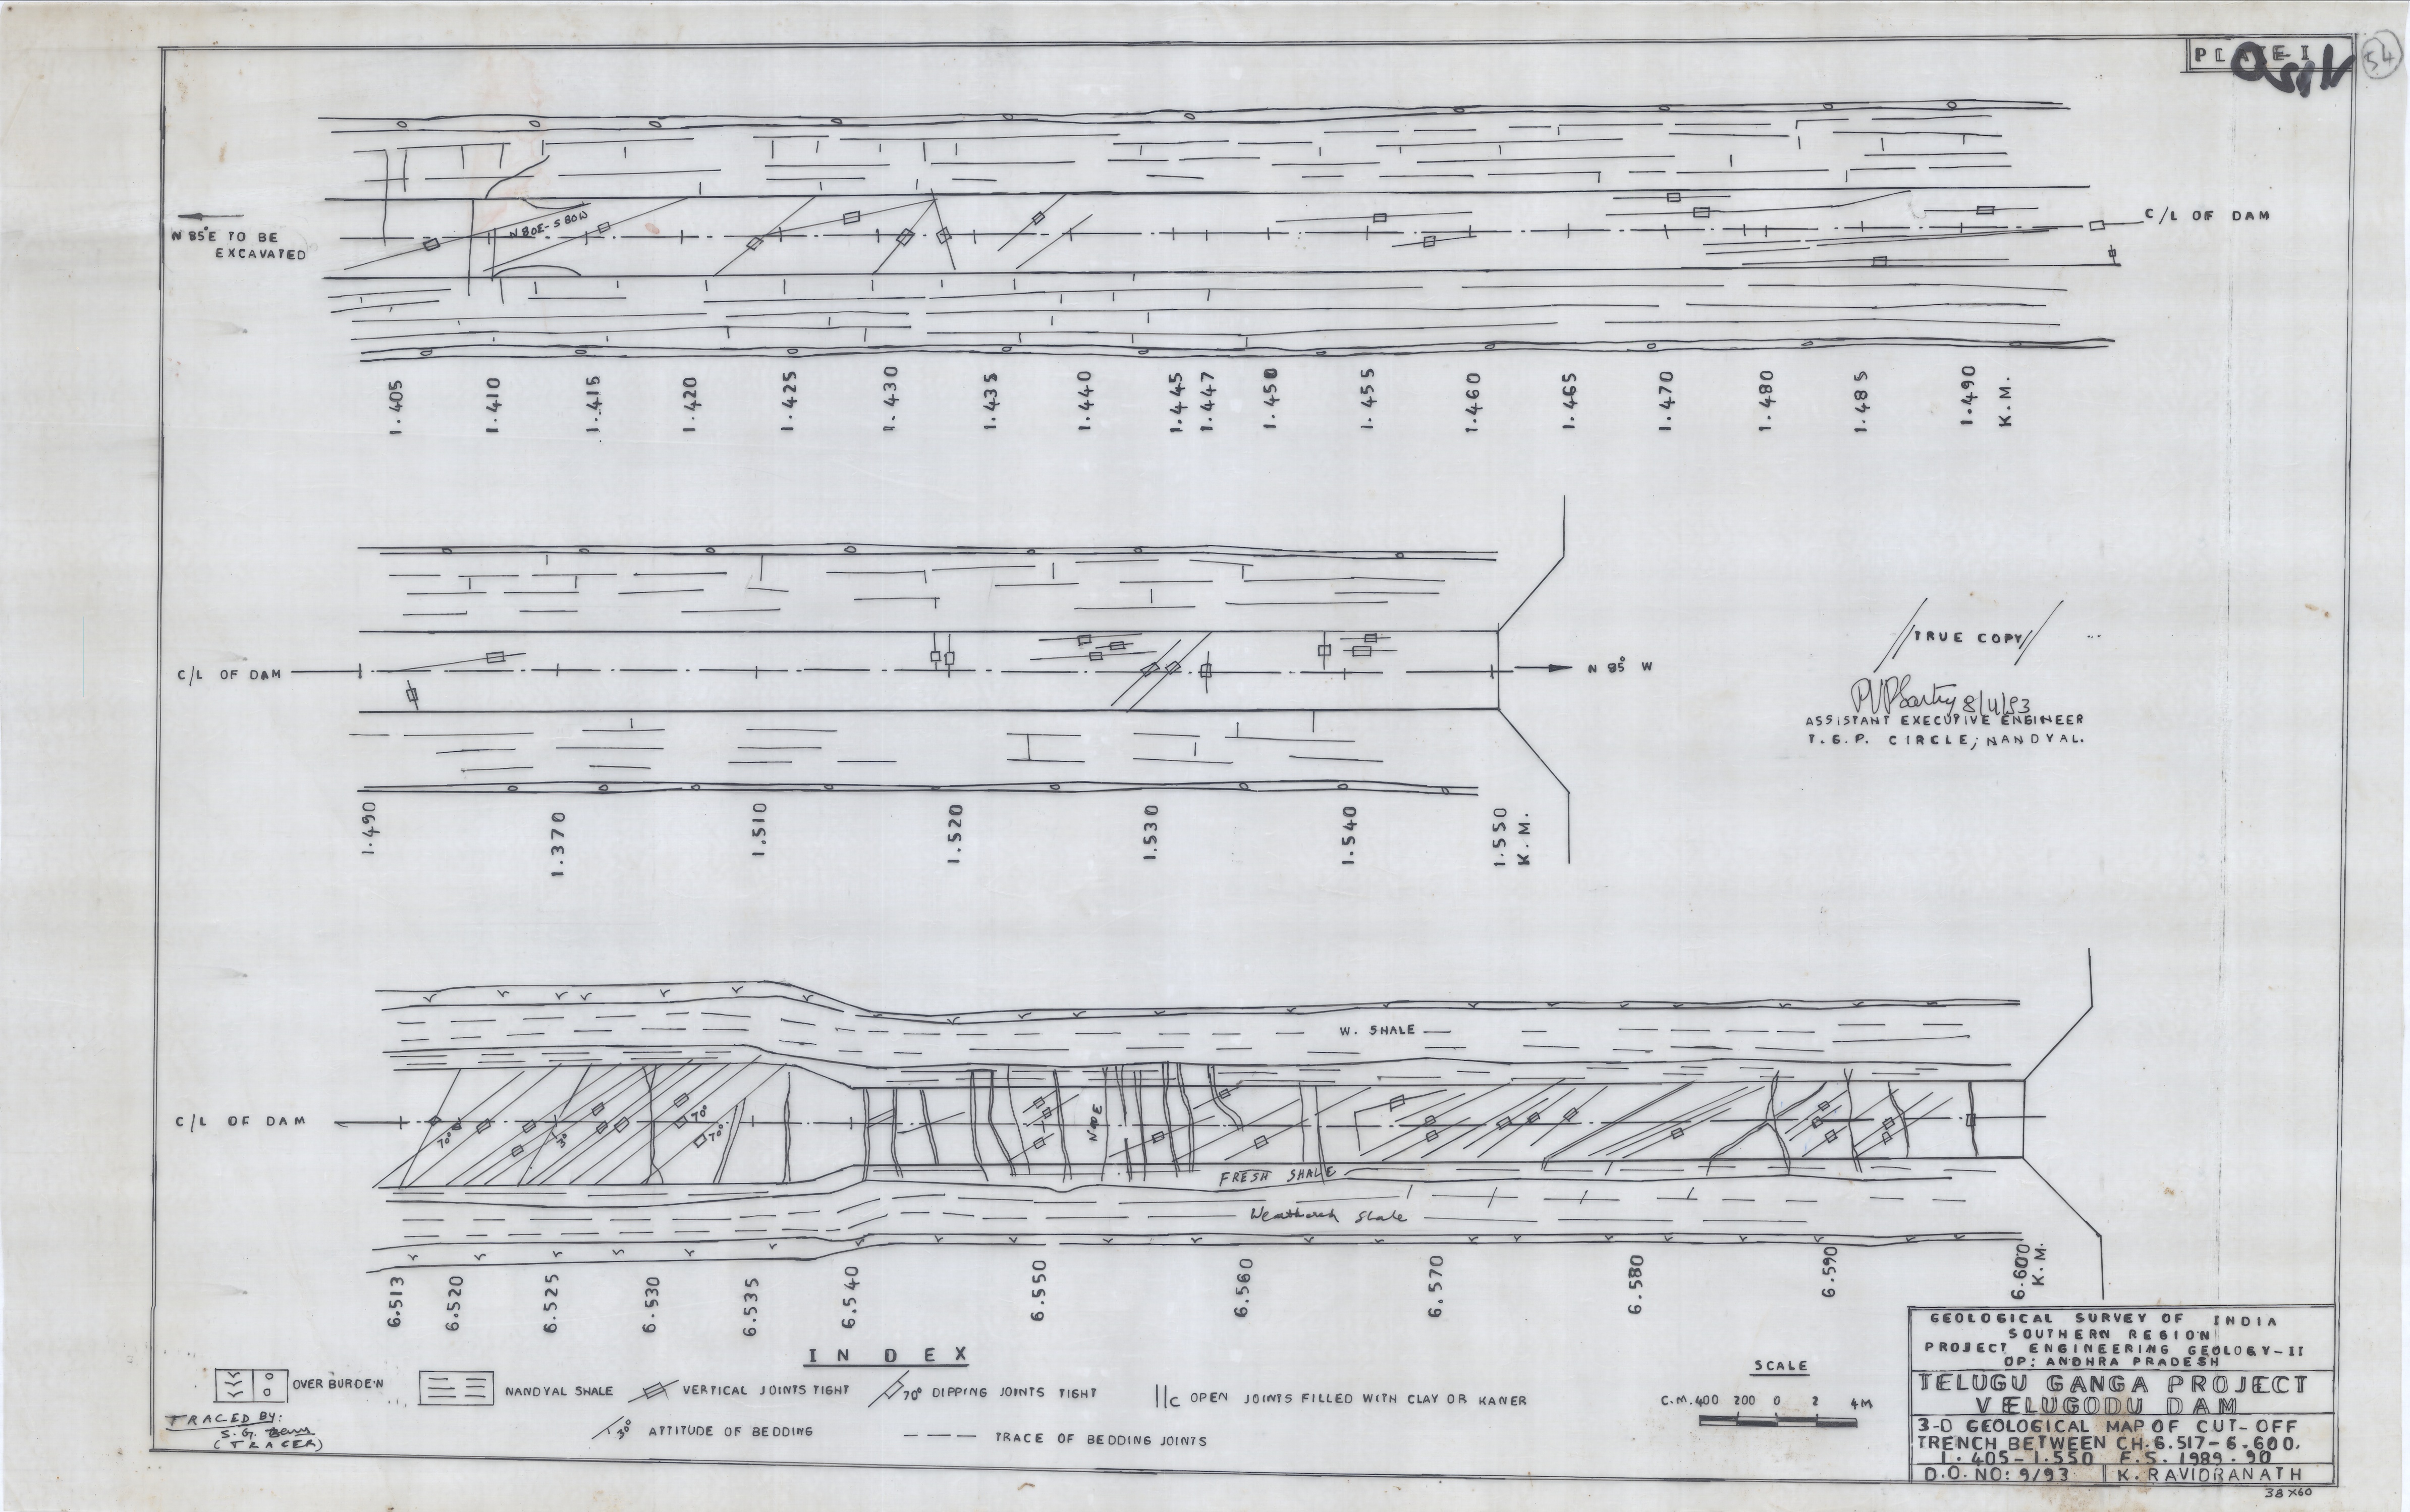 PLATE-I
54
N 85°E TO BE
EXCAVATED
N 80E-S 80W
C/L OF DAM
1.405
1.410
1.415
1.420
1.425
1.430
1.435
1.440
1.445
1.447
1.450
1.455
1.460
1.465
1.470
1.480
1.485
1.490
K.M.
C/L OF DAM
N 85° W
1.490
1.370
1.510
1.520
1.530
1.540
1.550
K.M.
//TRUE COPY//
8/11/93
ASSISTANT EXECUTIVE ENGINEER
T.G.P. CIRCLE, NANDYAL.
W. SHALE
C/L OF DAM
70°
3°
70°
70°
FRESH SHALE
Shale
6.513
6.520
6.525
6.530
6.535
6.540
6.550
6.560
6.570
6.580
6.590
6.600
K.M.
INDEX
OVER BURDEN
NANDYAL SHALE
VERTICAL JOINTS TIGHT
70° DIPPING JOINTS TIGHT
||c OPEN JOINTS FILLED WITH CLAY OR KANER
3° ATTITUDE OF BEDDING
TRACE OF BEDDING JOINTS
TRACED BY:
S. G.
(TRACER)
SCALE
C.M. 400 200 0 2 4M
GEOLOGICAL SURVEY OF INDIA
SOUTHERN REGION
PROJECT ENGINEERING GEOLOGY-II
OP: ANDHRA PRADESH
TELUGU GANGA PROJECT
VELUGODU DAM
3-D GEOLOGICAL MAP OF CUT-OFF
TRENCH BETWEEN CH.6.517-6.600.
1.405-1.550 F.S. 1989-90
D.O. NO: 9/93 K. RAVIDRANATH
38X60